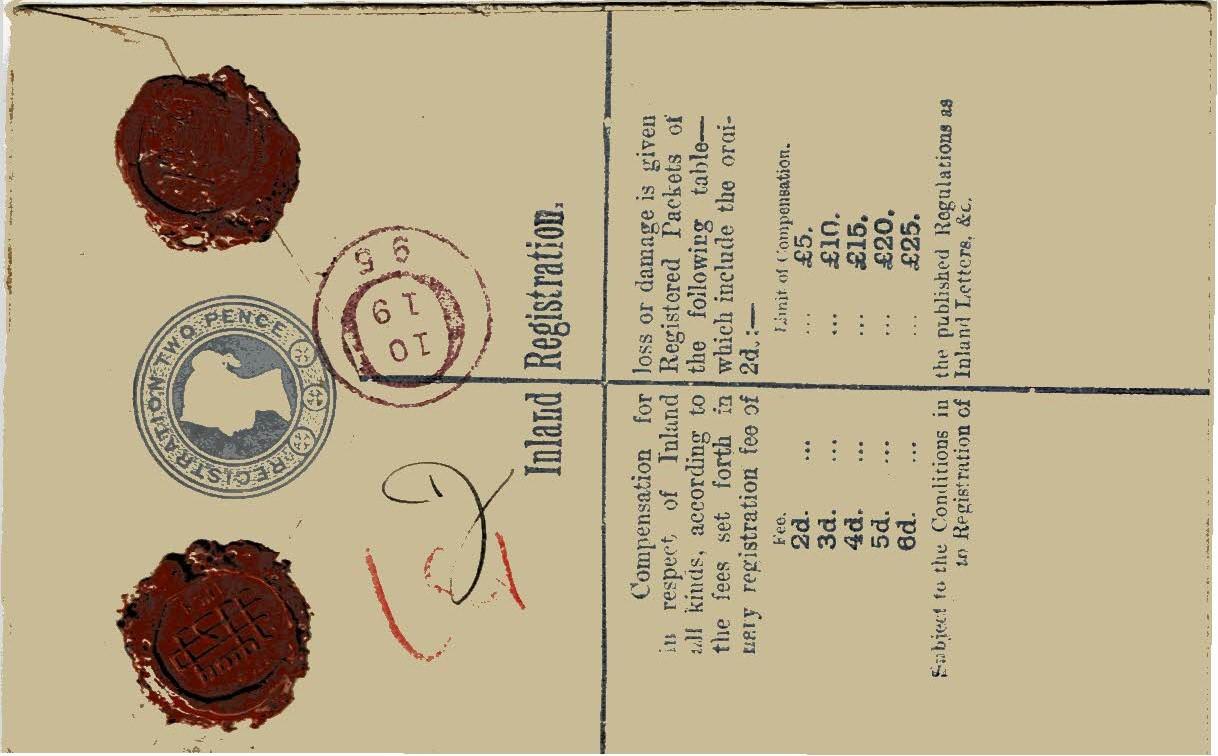 REGISTRATION TWO PENCE
95
19
10
Inland Registration.
Compensation for loss or damage is given
in respect of Inland Registered Packets of
all kinds, according to the following table—
the fees set forth in which include the ordi-
nary registration fee of 2d.:—
Fee. Limit of Compensation.
2d. ... ... £5.
3d. ... ... £10.
4d. ... ... £15.
5d. ... ... £20.
6d. ... ... £25.
Subject to the Conditions in the published Regulations as
to Registration of Inland Letters, &c.